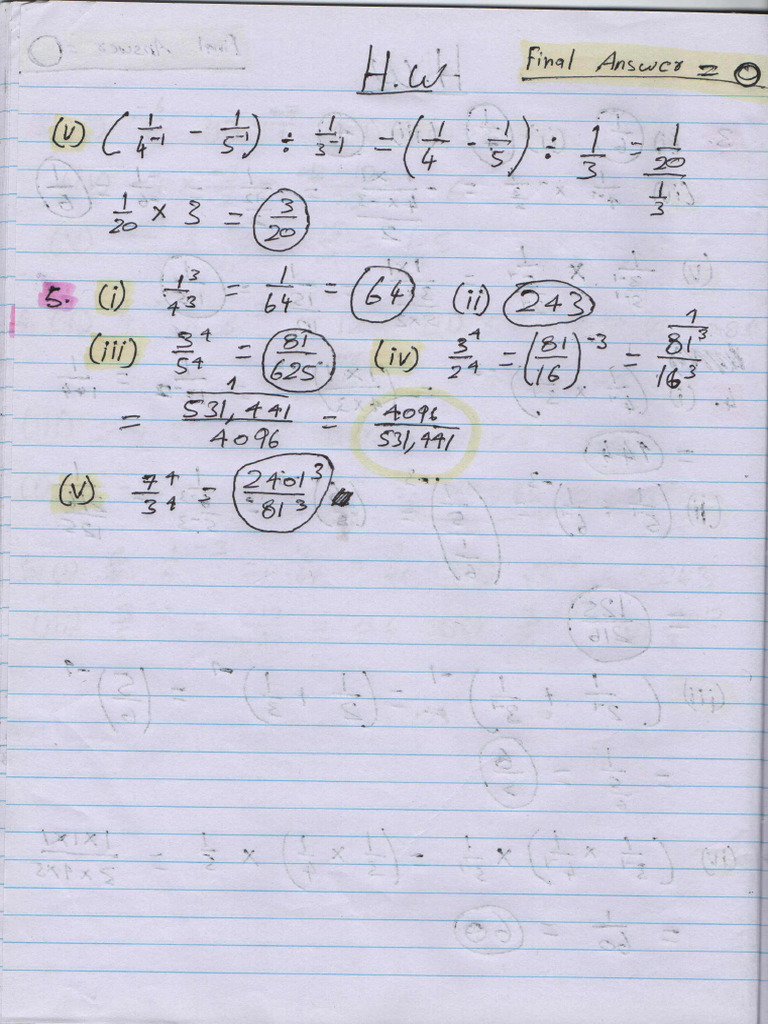 H.W
Final Answer = O
(v) (1/4^-1 - 1/5^-1) ÷ 1/3^-1 = (1/4 - 1/5) ÷ 1/3 = 1/20 / 1/3
1/20 × 3 = 3/20
5. (i) 1^3/4^3 = 1/64 = 64 (ii) 243
(iii) 3^4/5^4 = 81/625 (iv) 3^4/2^4 = (81/16)^-3 = 1 / 81^3/16^3
= 1 / 531,441/4096 = 4096/531,441
(v) 7^4/3^4 = 2401^3/81^3